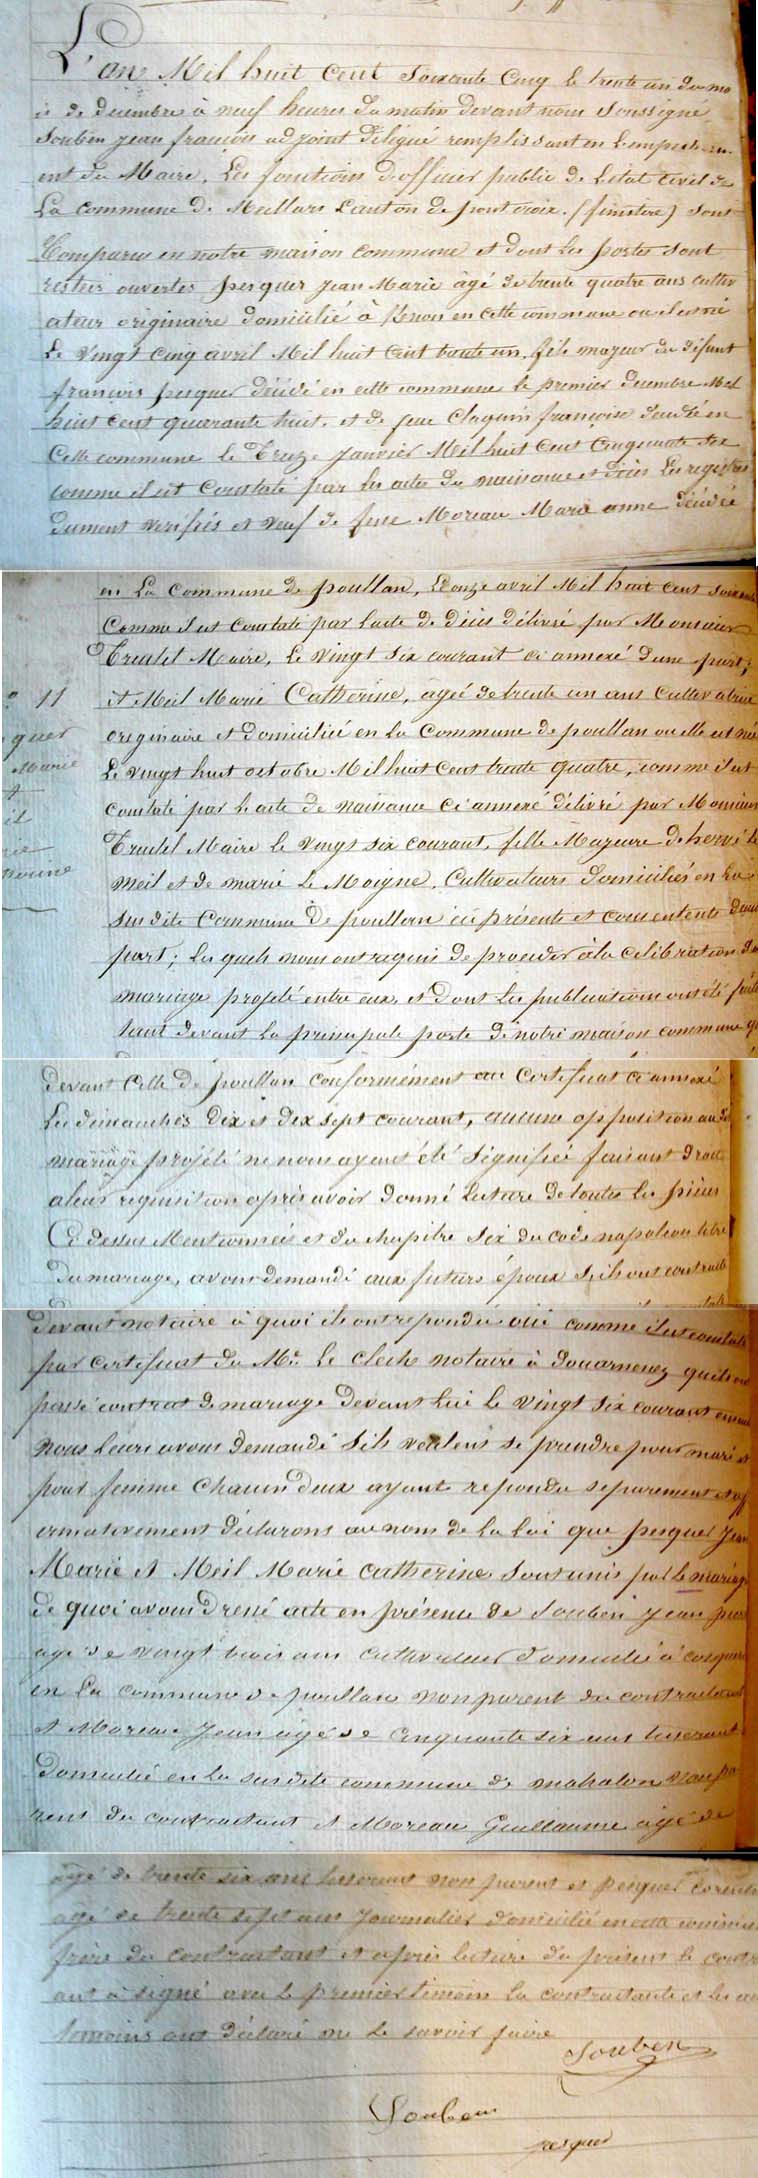 L'an Mil huit cent soixante Cinq le trente un du mo
is de décembre à neuf heures du matin devant nous soussigné
Souben jean françois adjoint déligué remplissant en Lempechem
ent du Maire, Les fonctions d'officier public de Letat Civil de
La commune de Meillars Canton de pontcroix (finistere) sont
Comparus en notre maison commune et dont les portes sont
restées ouvertes pesquer jean Marie âgé de trente quatre ans cultiv
ateur originaire domicilié à Kenou en cette commune ou il est né
Le vingt cinq avril Mil huit cent trente un, fils majeur du défunt
françois pesquer décédé en cette commune le premier décembre Mil
huit cent quarante huit, et de feue Claquin françoise décédée en
Cette commune le treize janvier Mil huit cent Cinquante
comme il est constaté par les actes de naissance et décès Les registres
dument verifiés et veuf de feue Moreau Marie anne décédée
en La commune de poullan, Le onze avril Mil huit cent soixante
Comme il est constaté par l'acte de décès délivré par Monsieur
Treutel Maire, Le vingt six courant ci annexé d'une part;
11 et Meil Marie Catherine, agée de trente un ans cultivatrice
quer originaire et domiciliée en la Commune de poullan ou elle est née
Marie Le vingt huit octobre Mil huit cent trente quatre, comme il est
et constaté par l'acte de naissance ci annexé délivré par Monsieur
il Treutel Maire le vingt six courant, fille Majeure de hervé Le
rie Meil et de marie Le Moigne, Cultivateurs domiciliés en La
herine sus dite Commune de poullan ici présents et consentents d'autre
part; les quels nous ont requis de proceder à la célébration du
mariage projeté entre eux, et dont les publications ont été faites
tant devant la principale porte de notre maison commune que
devant celle de poullan conformément au Certificat ci annexé
Les dimanches Dix et dix sept courant, aucune opposition au dit
mariage projété ne nous ayant été signifiée faisant droit
a leur requisition après avoir donné Lecture de toutes les pièces
Ci dessus Mentionnées et du chapitre six du code napoleon titre
du mariage, avons demandé aux futurs époux s'ils ont contracté
devant notaire à quoi ils ont repondu oui comme il est constaté
par certificat du Mr. Le clech notaire à Douarnenez quils ont
passé contrat de mariage devant lui le vingt six courant ensuite
nous leurs avons demandé s'ils veulent se prendre pour mari et
pour femme chacun deux ayant repondu separement et aff
ermativement déclarons au nom de la loi que pesquer Jean
Marie et Meil Marie catherine sont unis par le mariage
de quoi avons dressé acte en présence de Souben jean
agé de vingt trois ans cultivateur domicilié à
en La commune de poullan non parent du contractant
et Moreau Jean agé de cinquante six ans tisserant
domicilié en la sus dite commune de mahalon non pa
rent du contractant et Moreau Guillaume agé de
agé de trente six ans tisserant non parent et pesquer Corentin
agé de trente sept ans journalier domicilié en cette commune
frère du contractant et après lecture du présent le contr
ant a signé avec le premier témoin la contractante et les au
temoins ont déclaré ne le savoir faire
Souben
Souben
pesquer